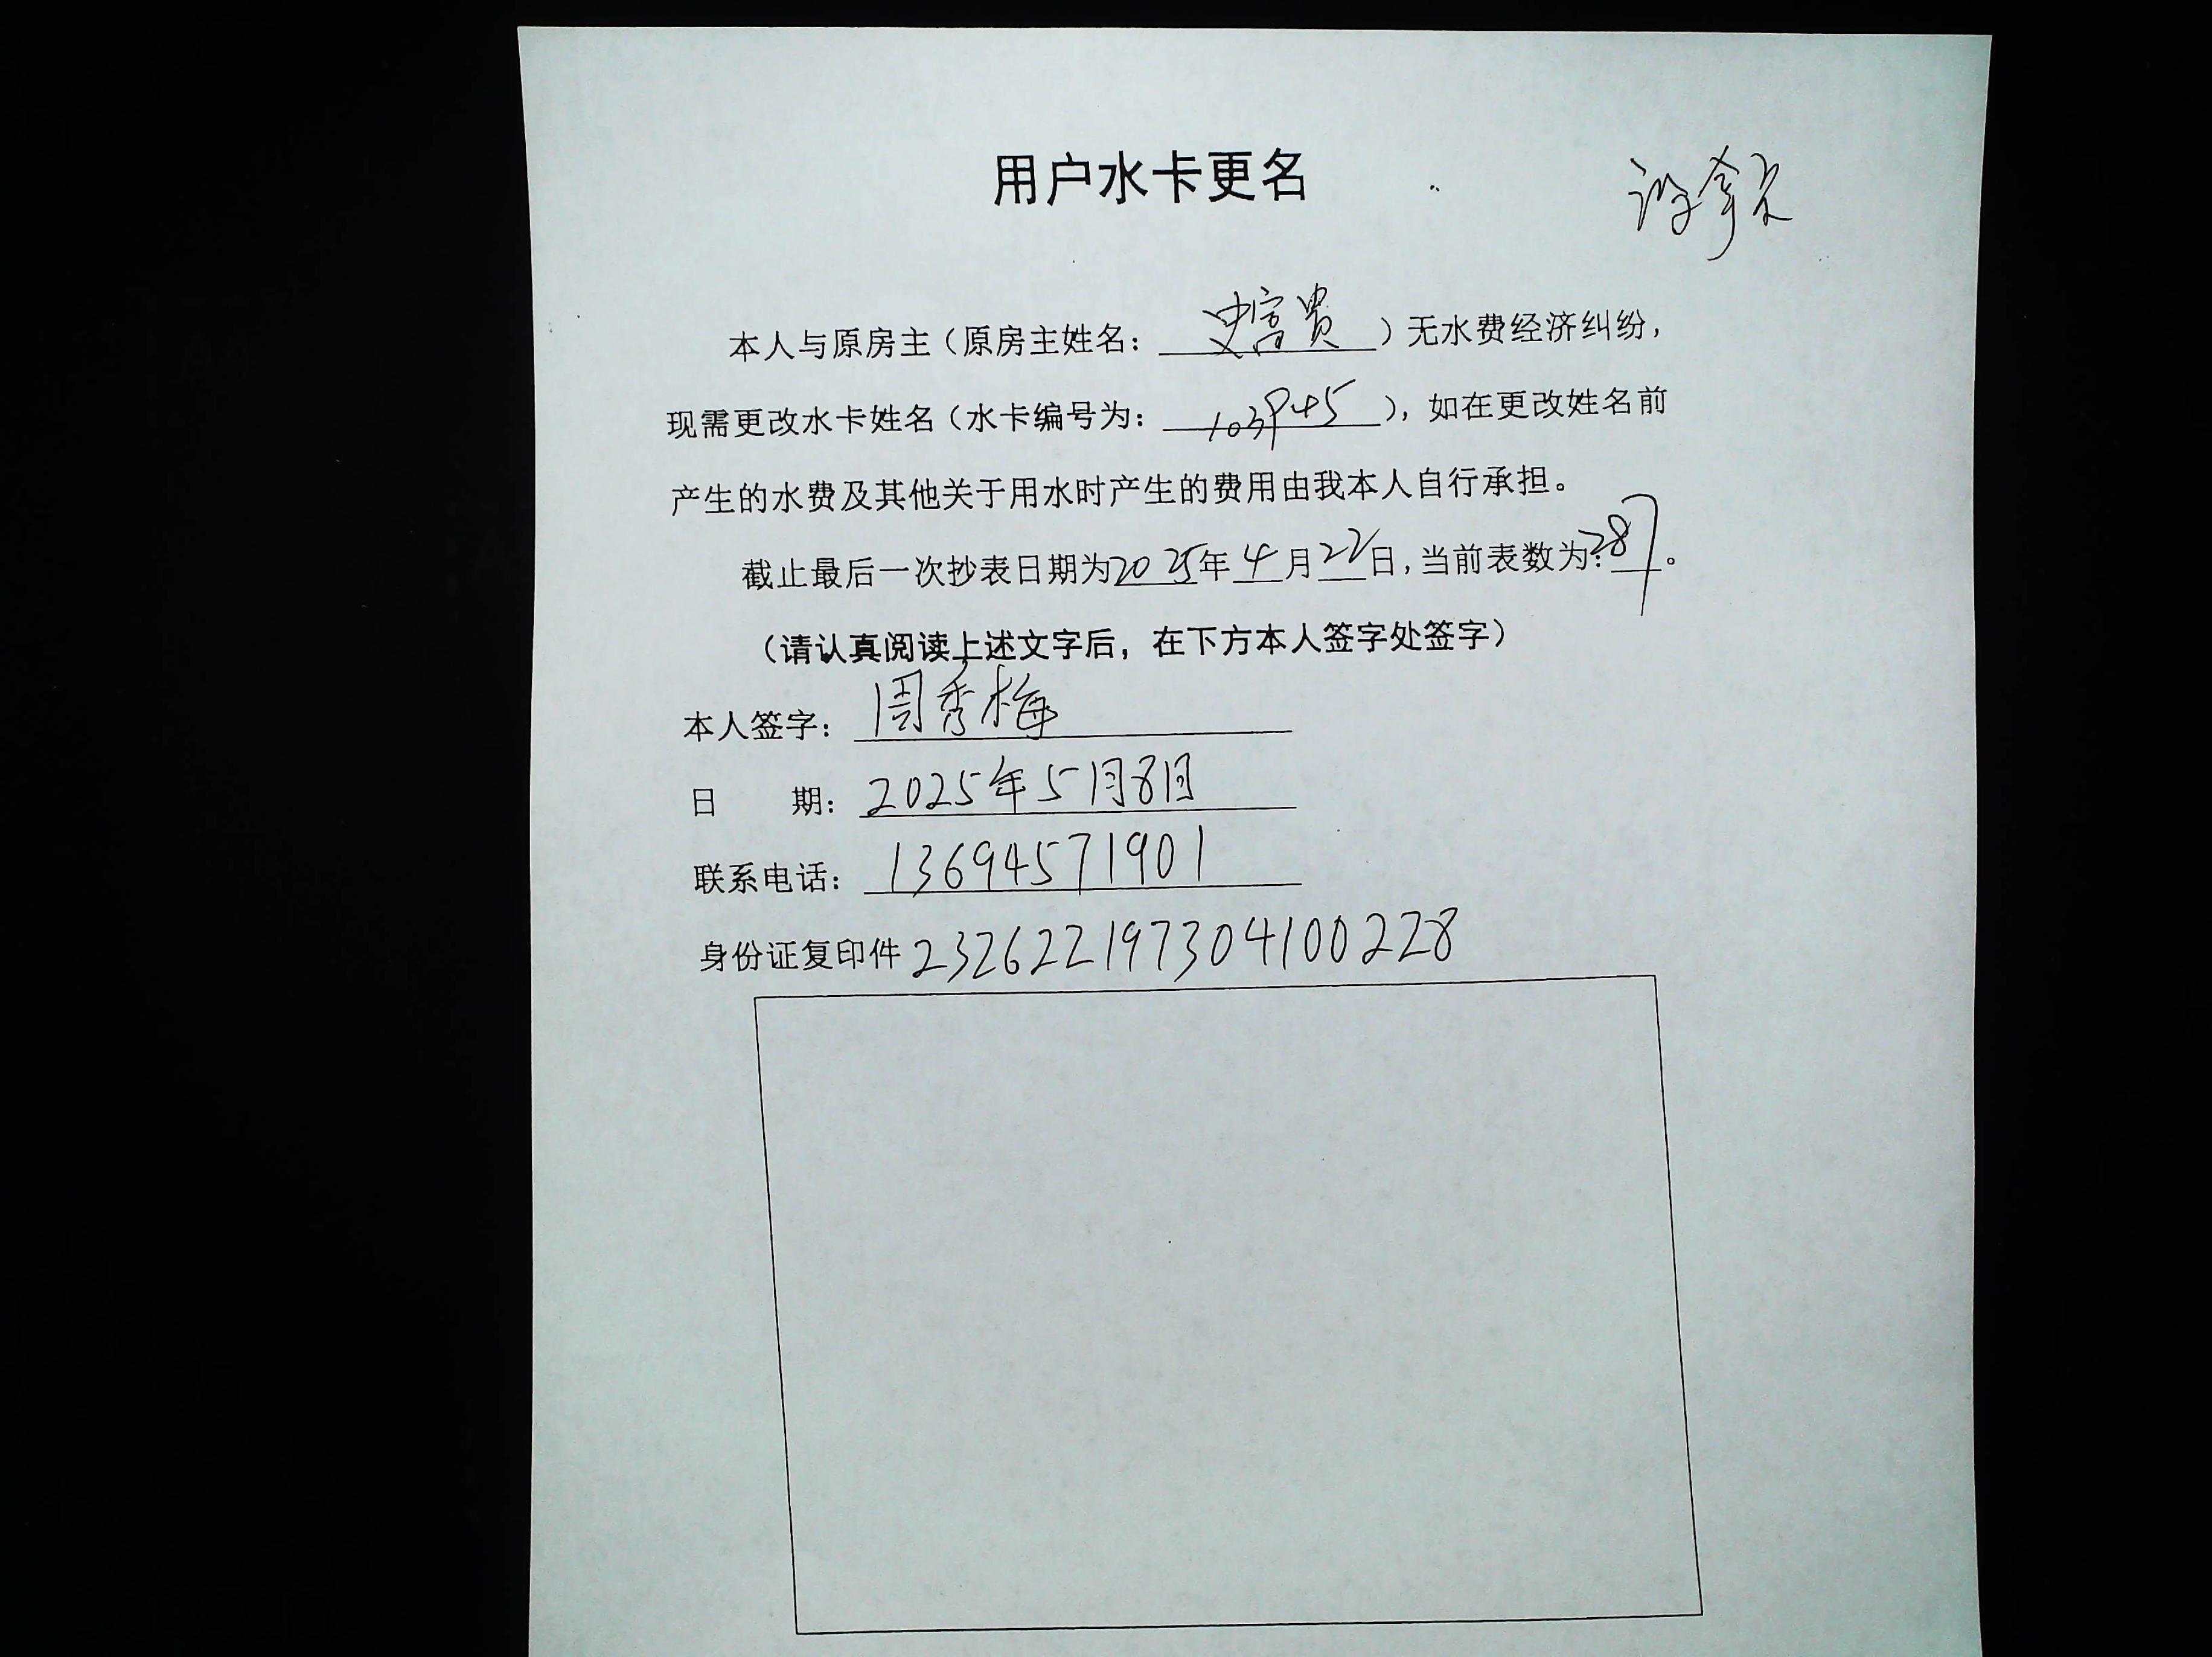 用户水卡更名
没拿卡
本人与原房主（原房主姓名：史富贵）无水费经济纠纷，
现需更改水卡姓名（水卡编号为：103945），如在更改姓名前
产生的水费及其他关于用水时产生的费用由我本人自行承担。
截止最后一次抄表日期为2025年4月22日，当前表数为：287。
（请认真阅读上述文字后，在下方本人签字处签字）
本人签字：周秀梅
日 期：2025年5月8日
联系电话：13694571901
身份证复印件 232622197304100228